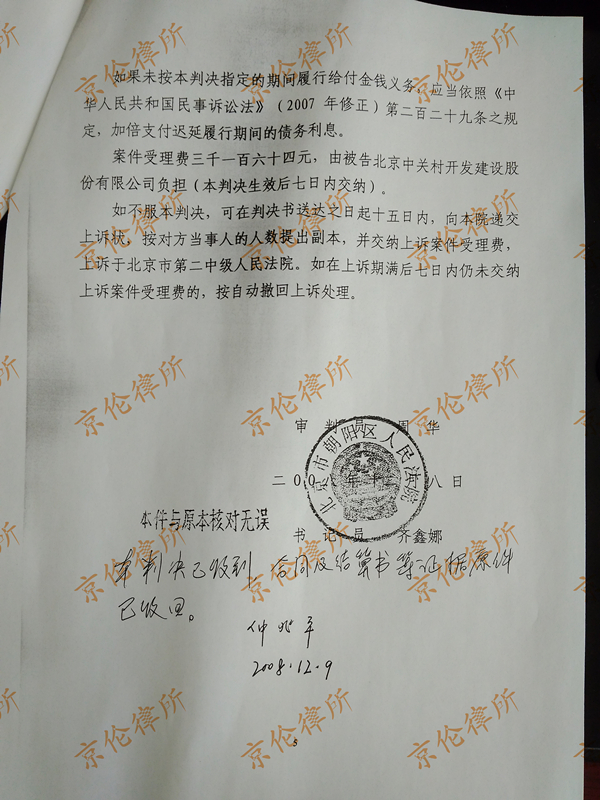 如果未按本判决指定的期间履行给付金钱义务，应当依照《中
华人民共和国民事诉讼法》（2007 年修正）第二百二十九条之规
定，加倍支付迟延履行期间的债务利息。
案件受理费三千一百六十四元，由被告北京中关村开发建设股
份有限公司负担（本判决生效后七日内交纳）。
如不服本判决，可在判决书送达之日起十五日内，向本院递交
上诉状，按对方当事人的人数提出副本，并交纳上诉案件受理费，
上诉于北京市第二中级人民法院。如在上诉期满后七日内仍未交纳
上诉案件受理费的，按自动撤回上诉处理。
审 判 员 周 华
北京市朝阳区人民法院
二〇〇 年十 八日
本件与原本核对无误
书 记 员 齐鑫娜
本判决已收到，合同及结算书等证据原件
已收回。
仲 平
2008.12.9
5
京伦律所